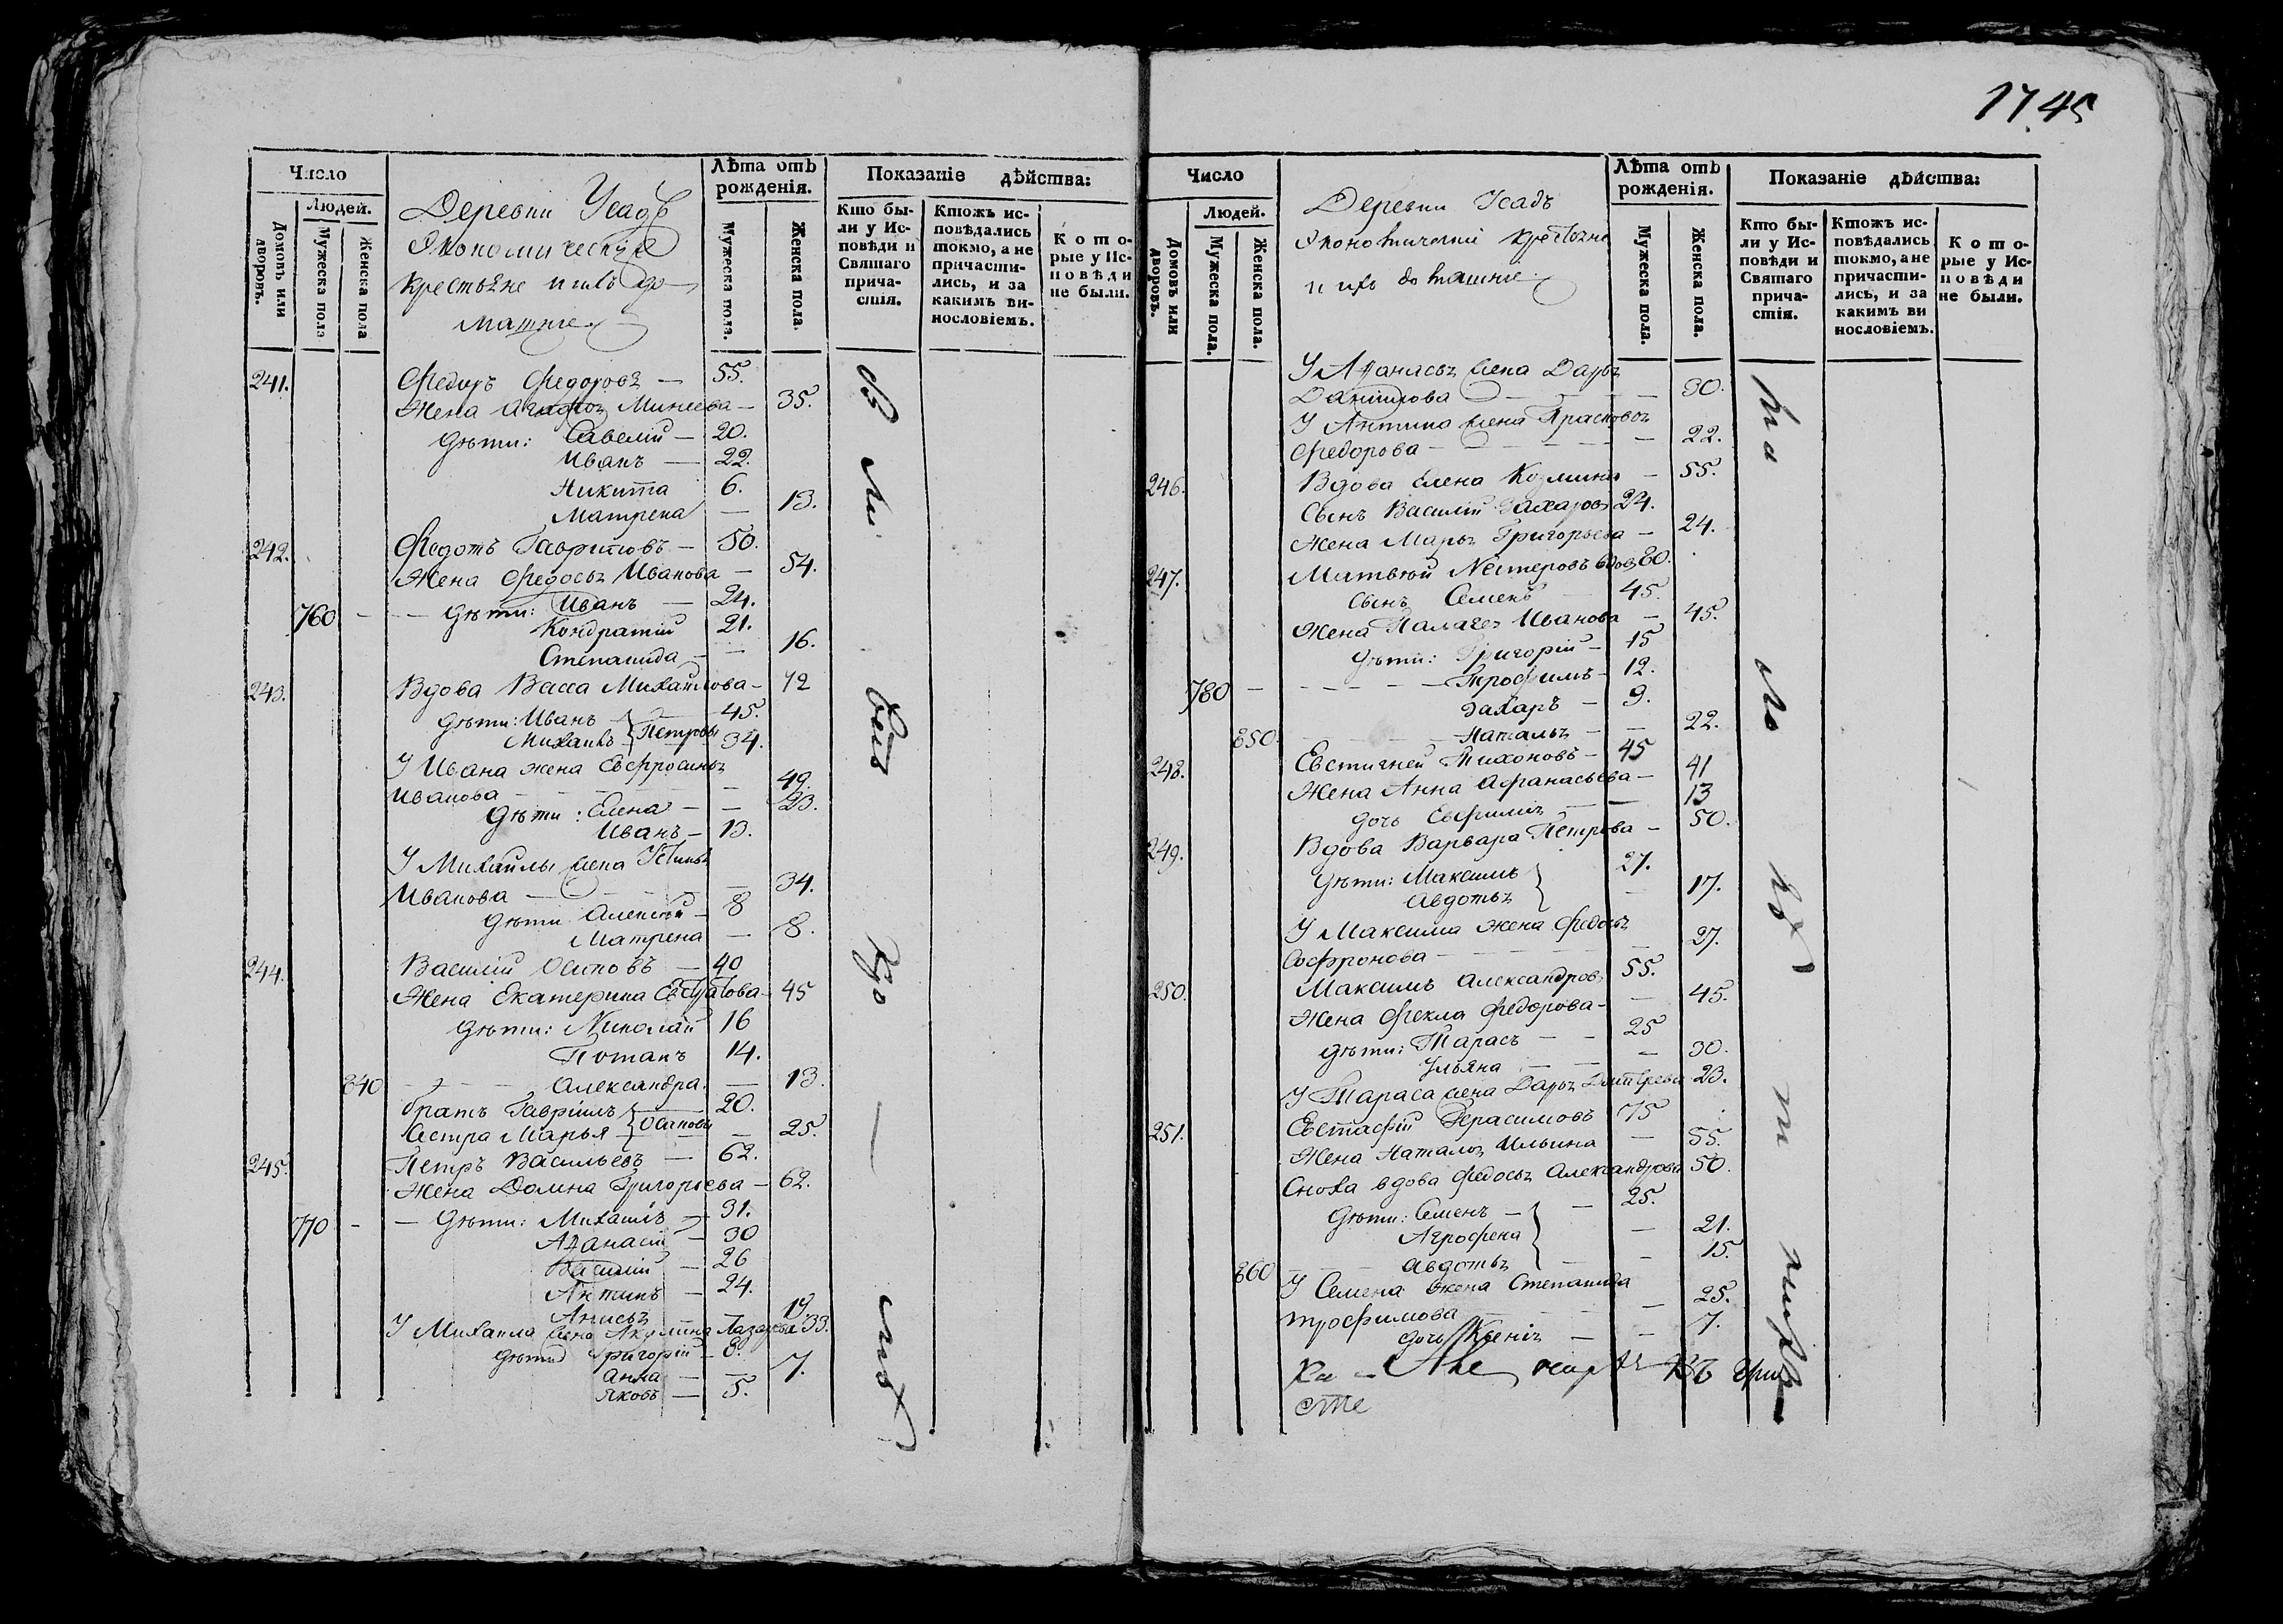 1745
Число
Людей.
Домовъ или дворовъ.
Мужеска пола
Женска пола
Деревни Усадъ
Экономическия
крестьяне и ихъ до
машние
Лѣта отъ рожденія.
Мужеска пола.
Женска пола.
Показаніе дѣйства:
Кто бы-
ли у Ис-
повѣди и
Святаго
прича-
стія.
Ктожъ ис-
повѣдались
токмо, а не
причасти-
лись, и за
какимъ ви-
нословіемъ.
Кото-
рые у Ис-
повѣди
не были.
241. Федоръ Федоровъ — 55.
Жена Минеева — 35.
дѣти: Савелій — 20.
Иванъ — 22.
Никита 6.
Матрена — 13.
242. Федотъ Гавриловъ — 50.
Жена Федосья Иванова — 54.
760 дѣти: Иванъ — 24.
Кондратій 21.
Степанида — 16.
243. Вдова Васса Михайлова — 72
дѣти: Иванъ — 45.
Михаилъ Петровы 34.
У Ивана жена Евфросинья
Иванова — 49.
дѣти: Елена — 23.
Иванъ — 13.
У Михайлы жена Устинья
Иванова — 34.
дѣти Алексѣй — 8
Матрена — 8.
244. Василій Осиповъ — 40
Жена Екатерина Евстратова — 45
дѣти: Николай 16
Потапъ 14.
840 Александра — 13.
братъ Гаврилъ 20.
Сестра Марья Осиповы — 25.
245. Петръ Васильевъ — 62.
Жена Домна Григорьева — 62.
770 — дѣти: Михаилъ — 31.
Афанасій — 30
Василій — 26
Антипъ — 24.
Анисья 19.
У Михаила жена Акулина Лазарева 33.
дѣти Григорій — 8.
Анна — 7.
Яковъ — 5.
Число
Людей.
Домовъ или дворовъ.
Мужеска пола.
Женска пола.
Деревни Усадъ
Экономическии крестьяне
и ихъ домашние
Лѣта отъ рожденія.
Мужеска пола.
Женска пола.
Показаніе дѣйства:
Кто бы-
ли у Ис-
повѣди и
Святаго
прича-
стія.
Ктожъ ис-
повѣдались
токмо, а не
причасти-
лись, и за
какимъ ви
нословіемъ.
Кото-
рые у Ис-
повѣди
не были.
У Афанасья жена Дарья
Данилова — 30.
У Антипа жена Прасковья
Федорова — 22.
246. Вдова Елена Козмина — 55.
Сынъ Василій Захаровъ 24.
Жена Марья Григорьева — 24.
247. Матвѣй Нестеровъ вдов 80.
Сынъ Семенъ 45.
Жена Палагея Иванова — 45.
дѣти: Григорій — 15
780 — Трофимъ — 12.
Захаръ — 9.
850 Наталья — 22.
248. Евстигней Тихоновъ — 45
Жена Анна Афанасьева — 41
дочь Евфимія — 13
249. Вдова Варвара Петрова — 50.
дѣти: Максимъ 27.
Авдотья — 17.
У Максима жена Федосья
Софронова — 27.
250. Максимъ Александровъ 55.
Жена Фекла Федорова — 45.
дѣти: Тарасъ — 25
Ульяна — 30.
У Тараса жена Дарья Дмитрева 23.
251. Евстафій Герасимовъ 75
Жена Наталья Ильина — 55.
Сноха вдова Федосья Александрова 50.
дѣти: Семенъ — 25.
Агрофена — 21.
860 Авдотья — 15.
У Семена жена Степанида
Трофимова — 25.
дочь Ксенія — 7.